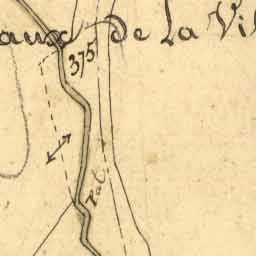 aux de la Vil
375